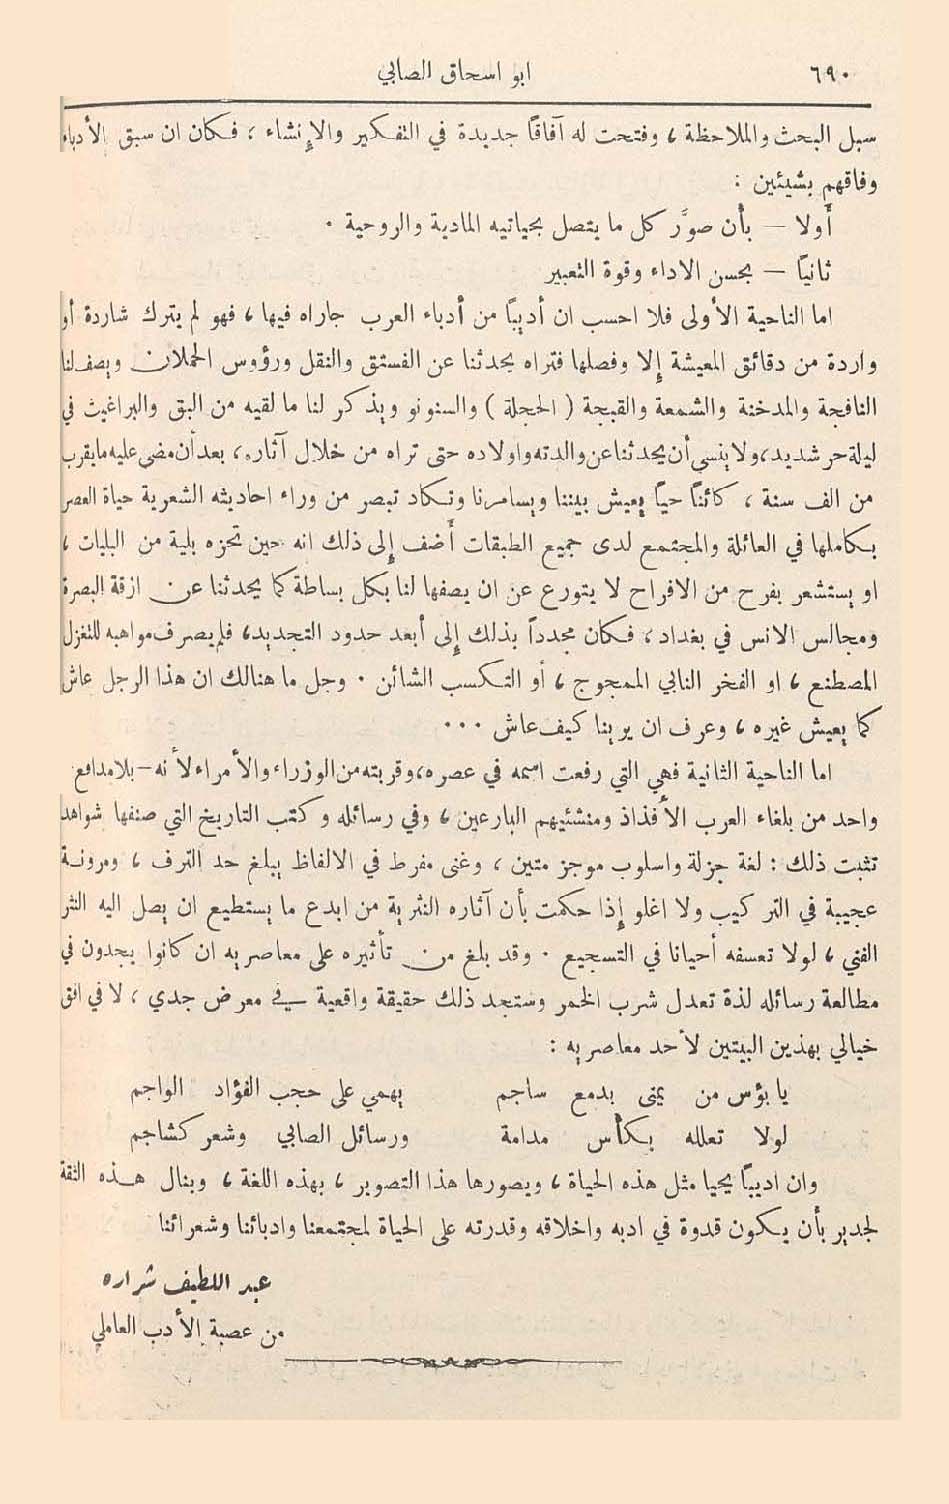 ٦٩٠
ابو اسحاق الصابي
سبل البحث والملاحظة ، وفتحت له آفاقاً جديدة في التفكير والإنشاء ، فكان ان سبق الأدباء
وفاقهم بشيئين :
أولا — بأن صوَّر كل ما يتصل بحياتيه المادية والروحية .
ثانياً — بحسن الاداء وقوة التعبير
اما الناحية الأولى فلا احسب ان أديباً من أدباء العرب جاراه فيها ، فهو لم يترك شاردة أو
واردة من دقائق المعيشة إلا وفصلها فتراه يحدثنا عن الفستق والنقل ورؤوس الحملان ويصف لنا
النافجة والمدخنة والشمعة والقبجة ( الحجلة ) والسنونو ويذكر لنا ما لقيه من البق والبراغيث في
ليلة حر شديد، ولا ينسى أن يحدثنا عن والدته واولاده حتى تراه من خلال آثاره، بعد أن مضى عليه ما يقرب
من الف سنة ، كائناً حياً يعيش بيننا ويسامرنا وتكاد تبصر من وراء احاديثه الشعرية حياة العصر
بكاملها في العائلة والمجتمع لدى جميع الطبقات أضف إلى ذلك انه حين تحزه بلية من البليات ،
او يستشعر بفرح من الافراح لا يتورع عن ان يصفها لنا بكل بساطة كما يحدثنا عن ازقة البصرة
ومجالس الانس في بغداد ، فكان مجدداً بذلك إلى أبعد حدود التجديد، فلم يصرف مواهبه للتغزل
المصطنع ، او الفخر النابي الممجوج ، أو التكسب الشائن . وجل ما هنالك ان هذا الرجل عاش
كما يعيش غيره ، وعرف ان يرينا كيف عاش ...
اما الناحية الثانية فهي التي رفعت اسمه في عصره، وقربته من الوزراء والأمراء لأنه — بلا مدافع
واحد من بلغاء العرب الأفذاذ ومنشئيهم البارعين ، وفي رسائله وكتب التاريخ التي صنفها شواهد
تثبت ذلك : لغة جزلة واسلوب موجز متين ، وغنى مفرط في الالفاظ يبلغ حد الترف ، ومرونة
عجيبة في التركيب ولا اغلو إذا حكمت بأن آثاره النثرية من ابدع ما يستطيع ان يصل اليه النثر
الفني ، لولا تعسفه أحيانا في التسجيع . وقد بلغ من تأثيره على معاصريه ان كانوا يجدون في
مطالعة رسائله لذة تعدل شرب الخمر وستجد ذلك حقيقة واقعية في معرض جدي ، لا في افق
خيالي بهذين البيتين لأحد معاصريه :
يا بؤس من يمنى بدمع ساجم يهمي على حجب الفؤاد الواجم
لولا تعلله بكأس مدامة ورسائل الصابي وشعر كشاجم
وان اديباً يحيا مثل هذه الحياة ، ويصورها هذا التصوير ، بهذه اللغة ، وينال هذه الثقة
لجدير بأن يكون قدوة في ادبه واخلاقه وقدرته على الحياة لمجتمعنا وادبائنا وشعرائنا
عبد اللطيف شراره
من عصبة الأدب العاملي